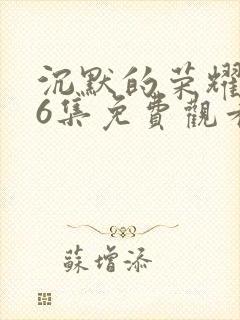 沉默的荣耀
6集免費觀看
蘇增添